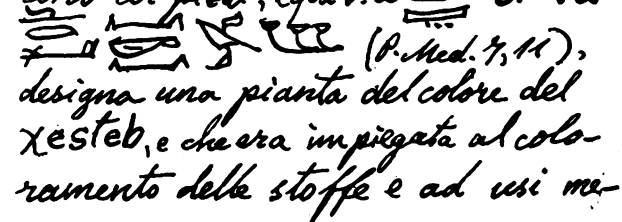 (P. Med. 7, 11),
designa una pianta del colore del
χesteb, e che era impiegata al colo-
ramento delle stoffe e ad usi me-